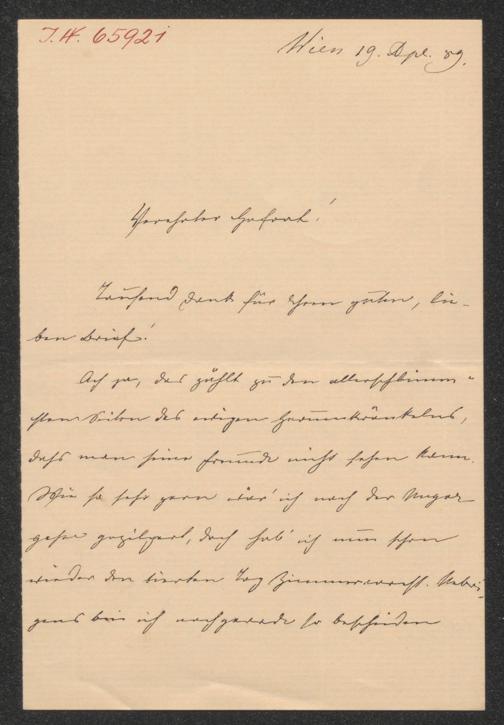 I.N. 65921
Wien 19. Apl. 89.
Verehrter Hofrat!
Tausend Dank für Ihren guten, lie-
ben Brief!
Ach ja, das zählt zu den allerschlimm-
sten Seiten des ewigen Herumkränkelns,
dass man seine Freunde nicht sehen kann.
Wie so sehr gern wär' ich nach der Ungar-
gasse gepilgert, doch hab' ich nun schon
wieder den vierten Tag Zimmerarrest. Uebri-
gens bin ich nachgerade so bescheiden